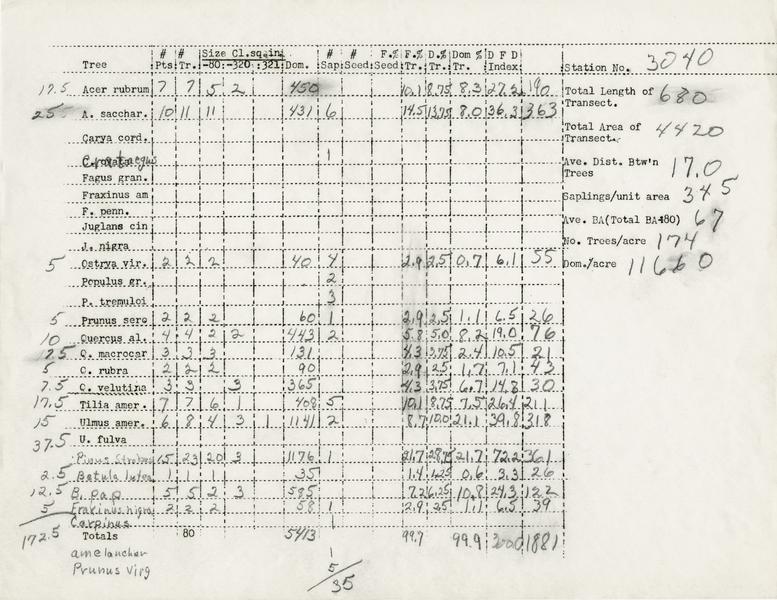 # # Size Cl.sq.in # # F.% F.% D.% Dom % D F D
Tree Pts. Tr. -80 -320 321 Dom. Sap Seed Seed Tr. Tr. Tr. Index Station No. 3040
17.5 Acer rubrum 7 7 5 2 450 10.1 8.75 8.3 27.2 190 Total Length of Transect. 680
25 A. sacchar. 10 11 11 431 6 14.5 13.75 8.0 36.3 363
Carya cord. Total Area of Transect. 4420
Crataegus 1
Fagus gran. Ave. Dist. Btw'n Trees 17.0
Fraxinus am Saplings/unit area 345
F. penn.
Juglans cin Ave. BA(Total BA÷80) 67
J. nigra No. Trees/acre 174
5 Ostrya vir. 2 2 2 40 4 2.9 2.5 0.7 6.1 55 Dom./acre 11660
Populus gr. 2
P. tremuloi 3
5 Prunus sero 2 2 2 60 1 2.9 2.5 1.1 6.5 26
10 Quercus al. 4 4 2 2 443 2 5.8 5.0 8.2 19.0 76
7.5 Q. macrocar 3 3 3 131 4.3 3.75 2.4 10.5 21
5 Q. rubra 2 2 2 90 2.9 2.5 1.7 7.1 43
7.5 Q. velutina 3 3 3 365 4.3 3.75 6.7 14.8 30
17.5 Tilia amer. 7 7 6 1 408 5 10.1 8.75 7.5 26.4 211
15 Ulmus amer. 6 8 4 3 1 1141 2 8.7 10.0 21.1 39.8 318
U. fulva
37.5 Pinus Strobus 15 23 20 3 1176 1 21.7 28.75 21.7 72.2 361
2.5 Betula lutea 1 1 1 35 1.4 1.25 0.6 3.3 26
12.5 B. pap 5 5 2 3 585 7.2 6.25 10.8 24.3 122
5 Fraxinus nigra 2 2 2 58 1 2.9 2.5 1.1 6.5 39
Carpinus 1
172.5 Totals 80 5413 99.7 99.9 300.0 1881
amelancher 1
Prunus Virg 5
35